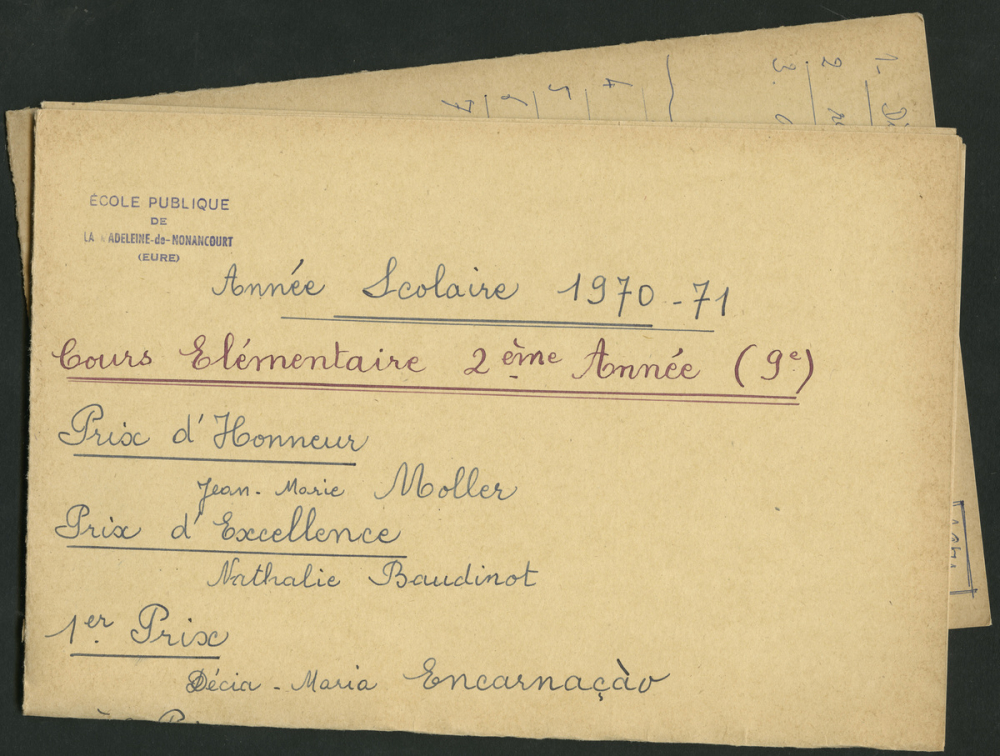 ÉCOLE PUBLIQUE
DE
LA MADELEINE-de-NONANCOURT
(EURE)
Année Scolaire 1970-71
Cours Elémentaire 2ème Année (9e)
Prix d'Honneur
Jean-Marie Moller
Prix d'Excellence
Nathalie Baudinot
1er Prix
Décia-Maria Encarnaçào
1-
2
3.
4
5
6
7